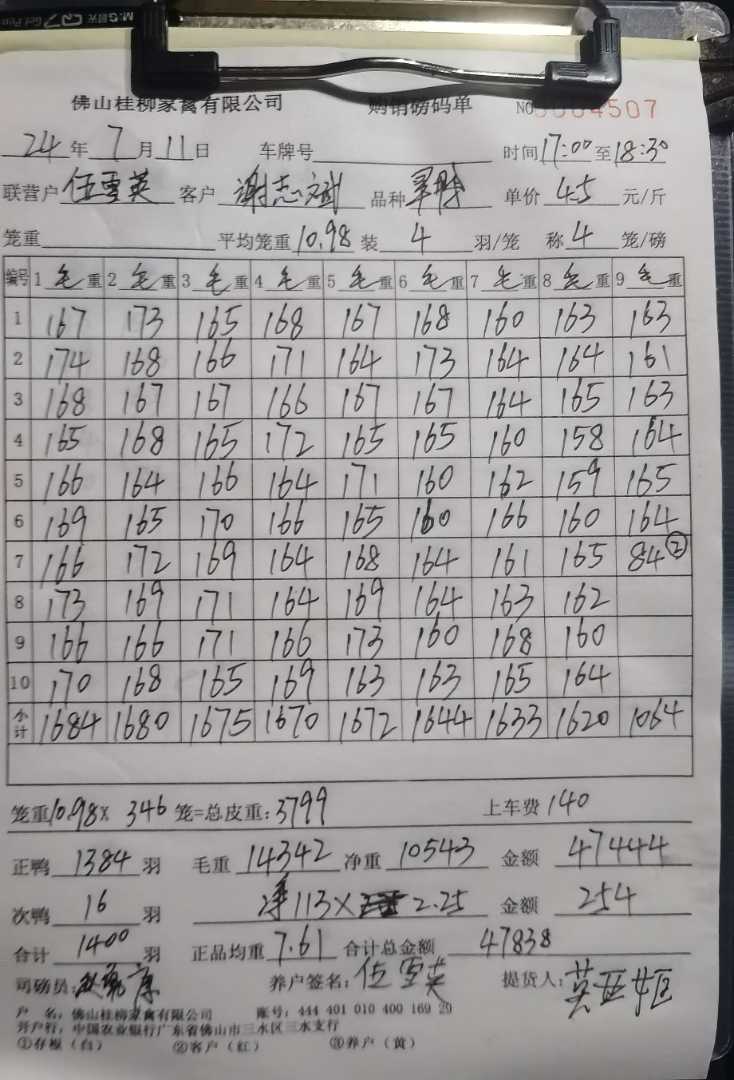 佛山桂柳家禽有限公司 购销磅码单 NO 0004507
24 年 7 月 11 日 车牌号 时间 17:00 至 18:30
联营户 伍雪英 客户 谢志斌 品种 单价 4.5 元/斤
笼重 平均笼重 10.98 装 4 羽/笼 称 4 笼/磅
编号 1 毛重 2 毛重 3 毛重 4 毛重 5 毛重 6 毛重 7 毛重 8 毛重 9 毛重
1 167 173 165 168 167 168 160 163 163
2 174 168 166 171 164 173 164 164 161
3 168 167 167 166 167 167 164 165 163
4 165 168 165 172 165 165 160 158 164
5 166 164 166 164 171 160 162 159 165
6 169 165 170 166 165 160 166 160 164
7 166 172 169 164 168 164 161 165 84 ②
8 173 169 171 164 169 164 163 162
9 166 166 171 166 173 160 168 160
10 170 168 165 169 163 163 165 164
小计 1684 1680 1675 1670 1672 1644 1633 1620 1064
笼重 10.98 × 346 笼=总皮重: 3799 上车费 140
正鸭 1384 羽 毛重 14342 净重 10543 金额 47444
次鸭 16 羽 净 113 × 2.25 金额 254
合计 1400 羽 正品均重 7.61 合计总金额 47838
司磅员: 养户签名: 伍雪英 提货人:
户 名: 佛山桂柳家禽有限公司 账号: 444 401 010 400 169 29
开户行: 中国农业银行广东省佛山市三水区三水支行
①存根(白) ②客户(红) ③养户(黄)